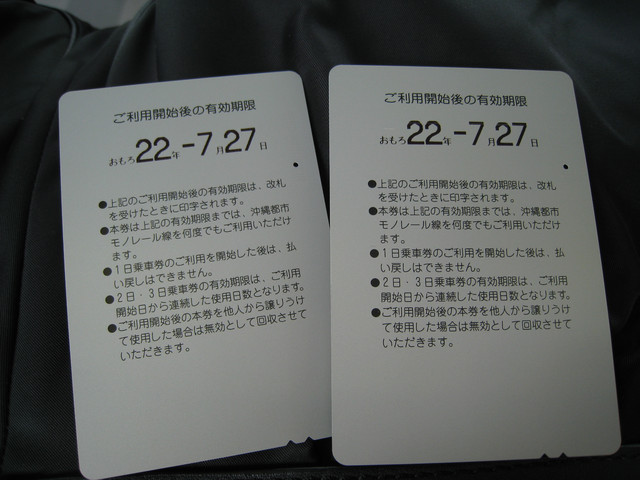 ご利用開始後の有効期限
おもろ22年-7月27日
●上記のご利用開始後の有効期限は、改札
を受けたときに印字されます。
●本券は上記の有効期限までは、沖縄都市
モノレール線を何度でもご利用いただけ
ます。
●1日乗車券のご利用を開始した後は、払
い戻しはできません。
●2日・3日乗車券の有効期限は、ご利用
開始日から連続した使用日数となります。
●ご利用開始後の本券を他人から譲りうけ
て使用した場合は無効として回収させて
いただきます。
ご利用開始後の有効期限
おもろ22年-7月27日
●上記のご利用開始後の有効期限は、改札
を受けたときに印字されます。
●本券は上記の有効期限までは、沖縄都市
モノレール線を何度でもご利用いただけ
ます。
●1日乗車券のご利用を開始した後は、払
い戻しはできません。
●2日・3日乗車券の有効期限は、ご利用
開始日から連続した使用日数となります。
●ご利用開始後の本券を他人から譲りうけ
て使用した場合は無効として回収させて
いただきます。